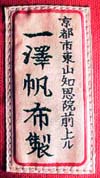 京都市東山知恩院前上ル
一澤帆布製